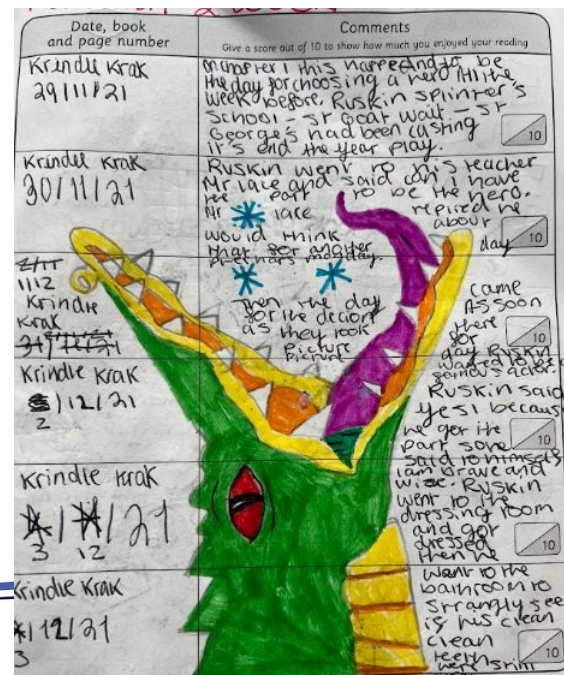 Date, book
and page number
Comments
Give a score out of 10 to show how much you enjoyed your reading
Krindle Krak
29/11/21
chapter 1 this happend to be
the day for choosing a hero
week before, Ruskin Splinter's
School - st Goat wait - st
George's had been casting
it's end the year play.
10
Krindle Krak
30/11/21
Ruskin went to his teacher
Mr lace and said can i have
the part to be the hero.
Mr lace replied he
would think about
that for another day
monday.
10
1/12
Krindle
Krak
Then the day came
for the decion As soon
as they took there
picture for
picture day Ruskin
famous actor.
10
Krindle Krak
/12/21
2
Ruskin said
yes! because
he got the
part
said to himself
10
Krindle Krak
/21
3 12
i am brave and
wize. Ruskin
went to the
dressing room
and got
dressed
then he
10
Krindle Krak
/12/21
3
went to the
bathroom to
see
is his clean
clean
teeth
were
10